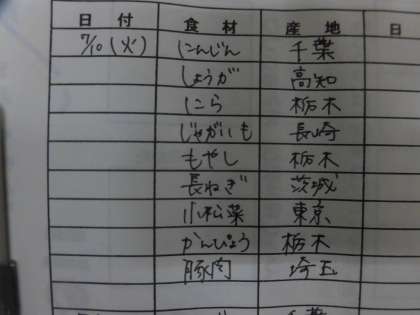 日 付 食 材 産 地 日
7/10(火) にんじん 千葉
しょうが 高知
にら 栃木
じゃがいも 長崎
もやし 栃木
長ねぎ 茨城
小松菜 東京
かんぴょう 栃木
豚肉 埼玉